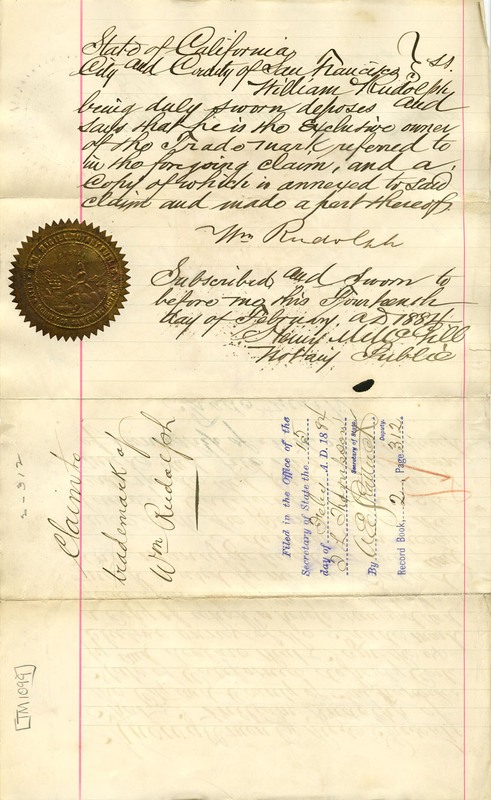 State of California
City and County of San Francisco } ss.
William Rudolph
being duly sworn deposes and
says that he is the Exclusive owner
of the Trade mark referred to
in the foregoing claim, and a
Copy of which is annexed to said
claim and made a part thereof
Wm Rudolph
Subscribed and sworn to
before me this Fourteenth
day of February A.D. 1884
Henry
Notary Public
2-312
Claim to
trademark of
Wm Rudolph
Filed in the Office of the
Secretary of State the 15
day of Feby A.D. 1884
Secretary of State
By
Deputy.
Record Book, 2 Page 312
[TM1099]